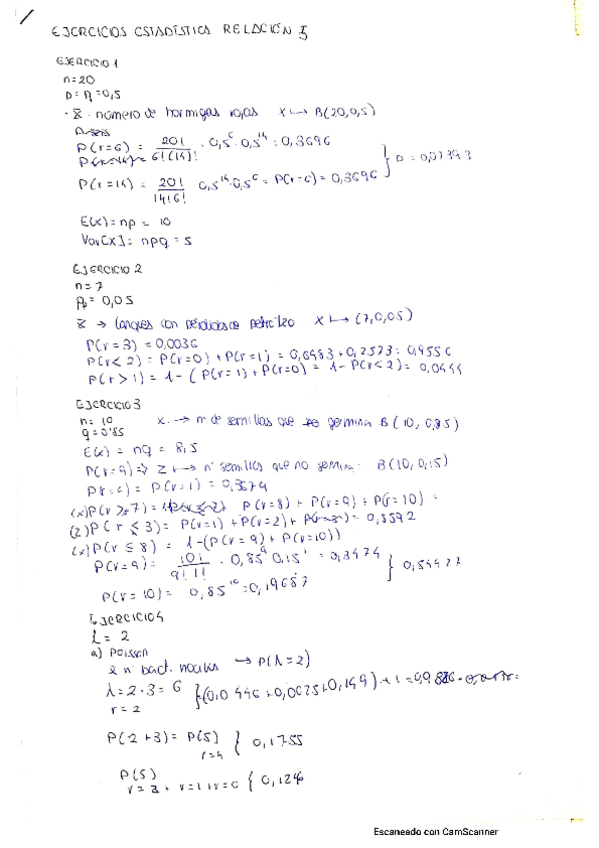 EJERCICIOS ESTADÍSTICA RELACIÓN 5
EJERCICIO 1
n=20
p = q = 0,5
· X · número de hormigas rojas X ↦ B(20,0,5)
P(r=6) = 20! / 6!(14)! · 0,5^6 · 0,5^14 = 0,3696
P(r=14) = 20! / 14!6! 0,5^14 · 0,5^6 = P(r=6) = 0,3696 } 0 = 0,07393
E(x) = np = 10
Var[X] = npq = 5
EJERCICIO 2
n=7
p = 0,05
X → tanques con pérdidas de petróleo X ↦ (7,0,05)
P(r=3) = 0,0036
P(r<2) = P(r=0) + P(r=1) = 0,6983 + 0,2573 = 0,9556
P(r>1) = 1 - (P(r=1) + P(r=0) = 1 - P(r<2) = 0,0444
EJERCICIO 3
n = 10
q = 0'85
x. → nº de semillas que germina B(10, 0,85)
E(x) = nq = 8,5
P(r=9) ⇒ Z ↦ nº semillas que no germina: B(10,0,15)
P(r=1) = 0,3474
(x) P(r ≥ 7) = P(r=8) + P(r=9) + P(r=10) =
(z) P(r ≤ 3) = P(r=1) + P(r=2) + = 0,8592
(x) P(r ≤ 8) = 1-(P(r=9) + P(r=10))
P(r=9) = 10! / 9!1! · 0,85^9 0,15^1 = 0,3474
P(r=10) = 0,85^10 = 0,19687 } 0,54427
EJERCICIO 4
λ = 2
a) Poisson
nº bact. nocivas → P(λ=2)
λ = 2·3 = 6 } (0,0446 + 0,0025 + 0,149) + 1 =
r = 2
P(2+3) = P(5) { 0,1755
r=4
P(5)
r=2, r=1, r=0 { 0,1246
Escaneado con CamScanner